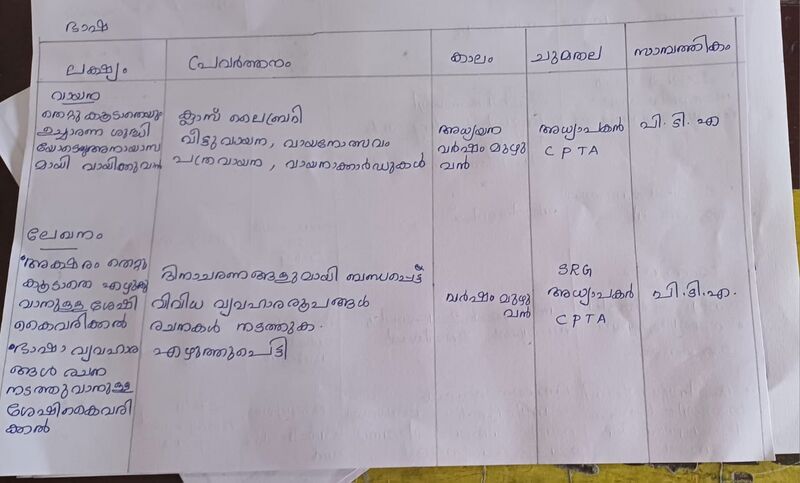 ഭാഷ
ലക്ഷ്യം
പ്രവർത്തനം
കാലം
ചുമതല
സാമ്പത്തികം
വായന
തെറ്റുകൂടാതെയും
ഉച്ചാരണ ശുദ്ധി
യോടെയും അനായാസ
മായി വായിക്കുവൻ
ക്ലാസ് ലൈബ്രറി
വീട്ടുവായന, വായനോത്സവം
പത്രവായന, വായനാക്കാർഡുകൾ
അധ്യയന
വർഷം മുഴു
വൻ
അധ്യാപകൻ
CPTA
പി.ടി.എ
ലേഖനം
അക്ഷരം തെറ്റു
കൂടാതെ എഴുതു
വാനുള്ള ശേഷി
കൈവരിക്കൽ
ഭാഷാ വ്യവഹാര
ങ്ങൾ രചന
നടത്തുവാനുള്ള
ശേഷി കൈവരി
ക്കൽ
ദിനാചരണങ്ങളുമായി ബന്ധപ്പെട്ട
വിവിധ വ്യവഹാരരൂപങ്ങൾ
രചനകൾ നടത്തുക.
എഴുത്തുപെട്ടി
വർഷം മുഴു
വൻ
SRG
അധ്യാപകർ
CPTA
പി.ടി.എ.